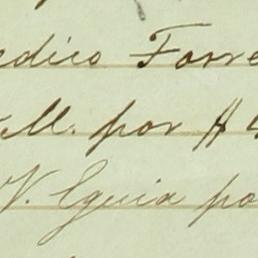 edico Forre
M. por $
V. Eguia po